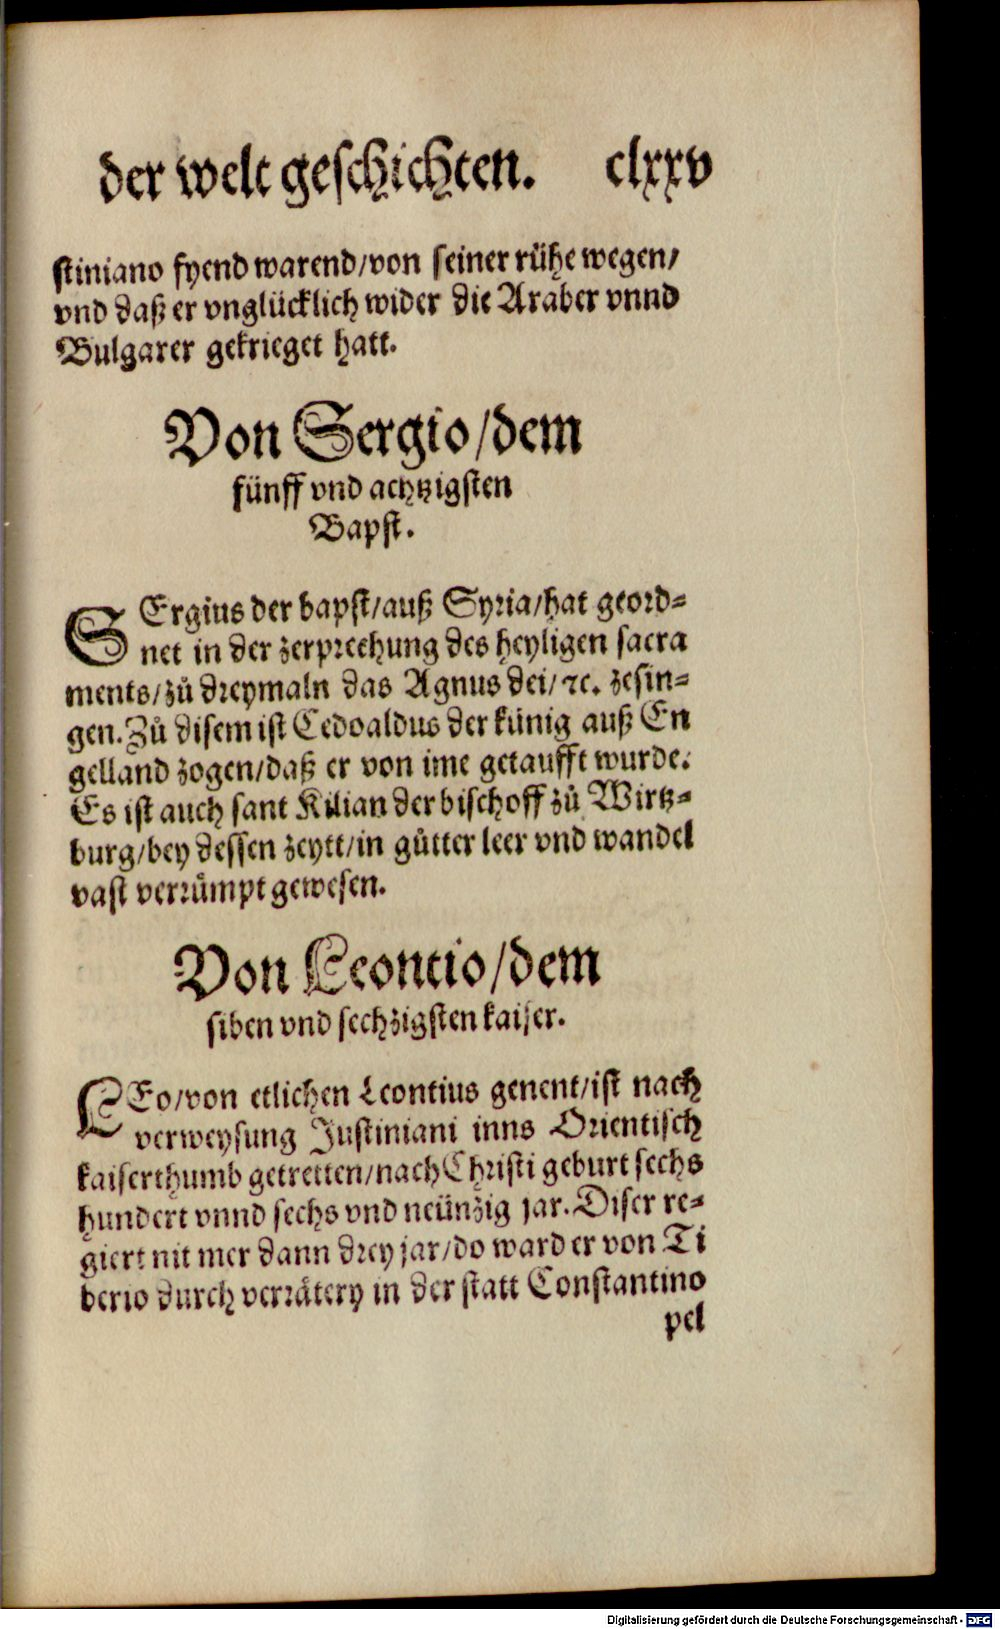 der welt geschichten. clxxv
stiniano fyend warend/von seiner rühe wegen/
vnd daß er vnglücklich wider die Araber vnnd
Bulgarer gekrieget hatt.
Von Sergio/dem
fünff vnd achtzigsten
Bapst.
SErgius der bapst/auß Syria/hat geord-
net in der zerprechung des heyligen sacra
ments/zů dreymaln das Agnus dei/ꝛc. zesin-
gen. Zů disem ist Cedoaldus der künig auß En
gelland zogen/daß er von ime getaufft wurde.
Es ist auch sant Kilian der bischoff zů Wirtz-
burg/bey dessen zeytt/in gůtter leer vnd wandel
vast verrůmpt gewesen.
Von Leoncio/dem
siben vnd sechzigsten kaiser.
LEo/von etlichen Leontius genent/ist nach
verweysung Justiniani inns Orientisch
kaiserthumb getretten/nach Christi geburt sechs
hundert vnnd sechs vnd neünzig jar. Diser re-
giert nit mer dann drey jar/do ward er von Ti
berio durch verrätery in der statt Constantino
pel
Digitalisierung gefördert durch die Deutsche Forschungsgemeinschaft - DFG